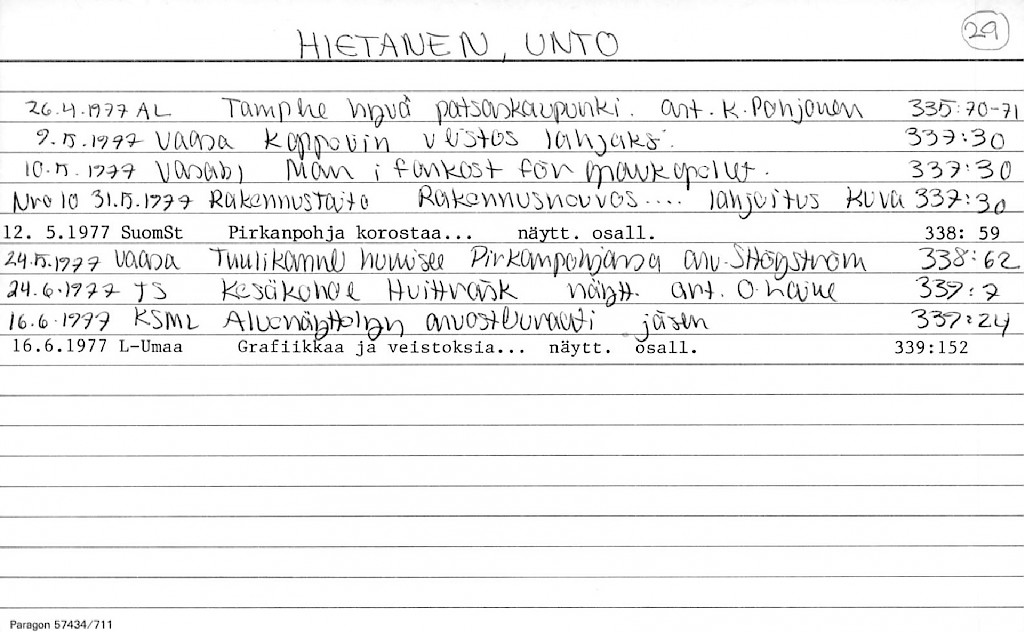 29
HIETANEN, UNTO
26.4.1977 AL Tampere hyvä patsaskaupunki. art. K. Pohjonen 335:70-71
9.5.1977 Vaasa veistos lahjaksi. 337:30
10.5.1977 Vasabl Man i för 337:30
Nro 10 31.5.1977 Rakennustaito Rakennusneuvos.... lahjoitus Kuva 337:30
12. 5.1977 SuomSt Pirkanpohja korostaa... näytt. osall. 338: 59
24.5.1977 Vaasa Tuulikannel humisee Pirkanpohjassa arv. S Högström 338:62
24.6.1977 TS Kesäkohde Hvitträsk näytt. art. O. Laine 339:7
16.6.1977 KSML Aluenäyttelyn arvosteluraati jäsen 339:24
16.6.1977 L-Umaa Grafiikkaa ja veistoksia... näytt. osall. 339:152
Paragon 57434/711